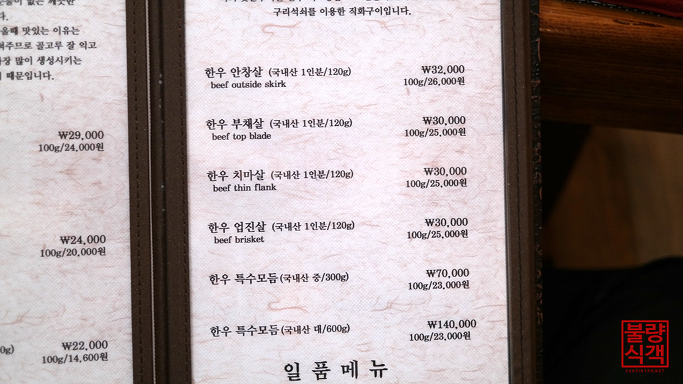 우므로 골고루 잘 익고
많이 생성시키는
때문입니다.
₩29,000
100g/24,000원
₩24,000
100g/20,000원
₩22,000
100g/14,600원
구리석쇠를 이용한 직화구이입니다.
한우 안창살 (국내산 1인분/120g) ₩32,000
beef outside skirk 100g/26,000원
한우 부채살 (국내산 1인분/120g) ₩30,000
beef top blade 100g/25,000원
한우 치마살 (국내산 1인분/120g) ₩30,000
beef thin flank 100g/25,000원
한우 업진살 (국내산 1인분/120g) ₩30,000
beef brisket 100g/25,000원
한우 특수모듬(국내산 중/300g) ₩70,000
100g/23,000원
한우 특수모듬(국내산 대/600g) ₩140,000
100g/23,000원
일품메뉴
불량
식객